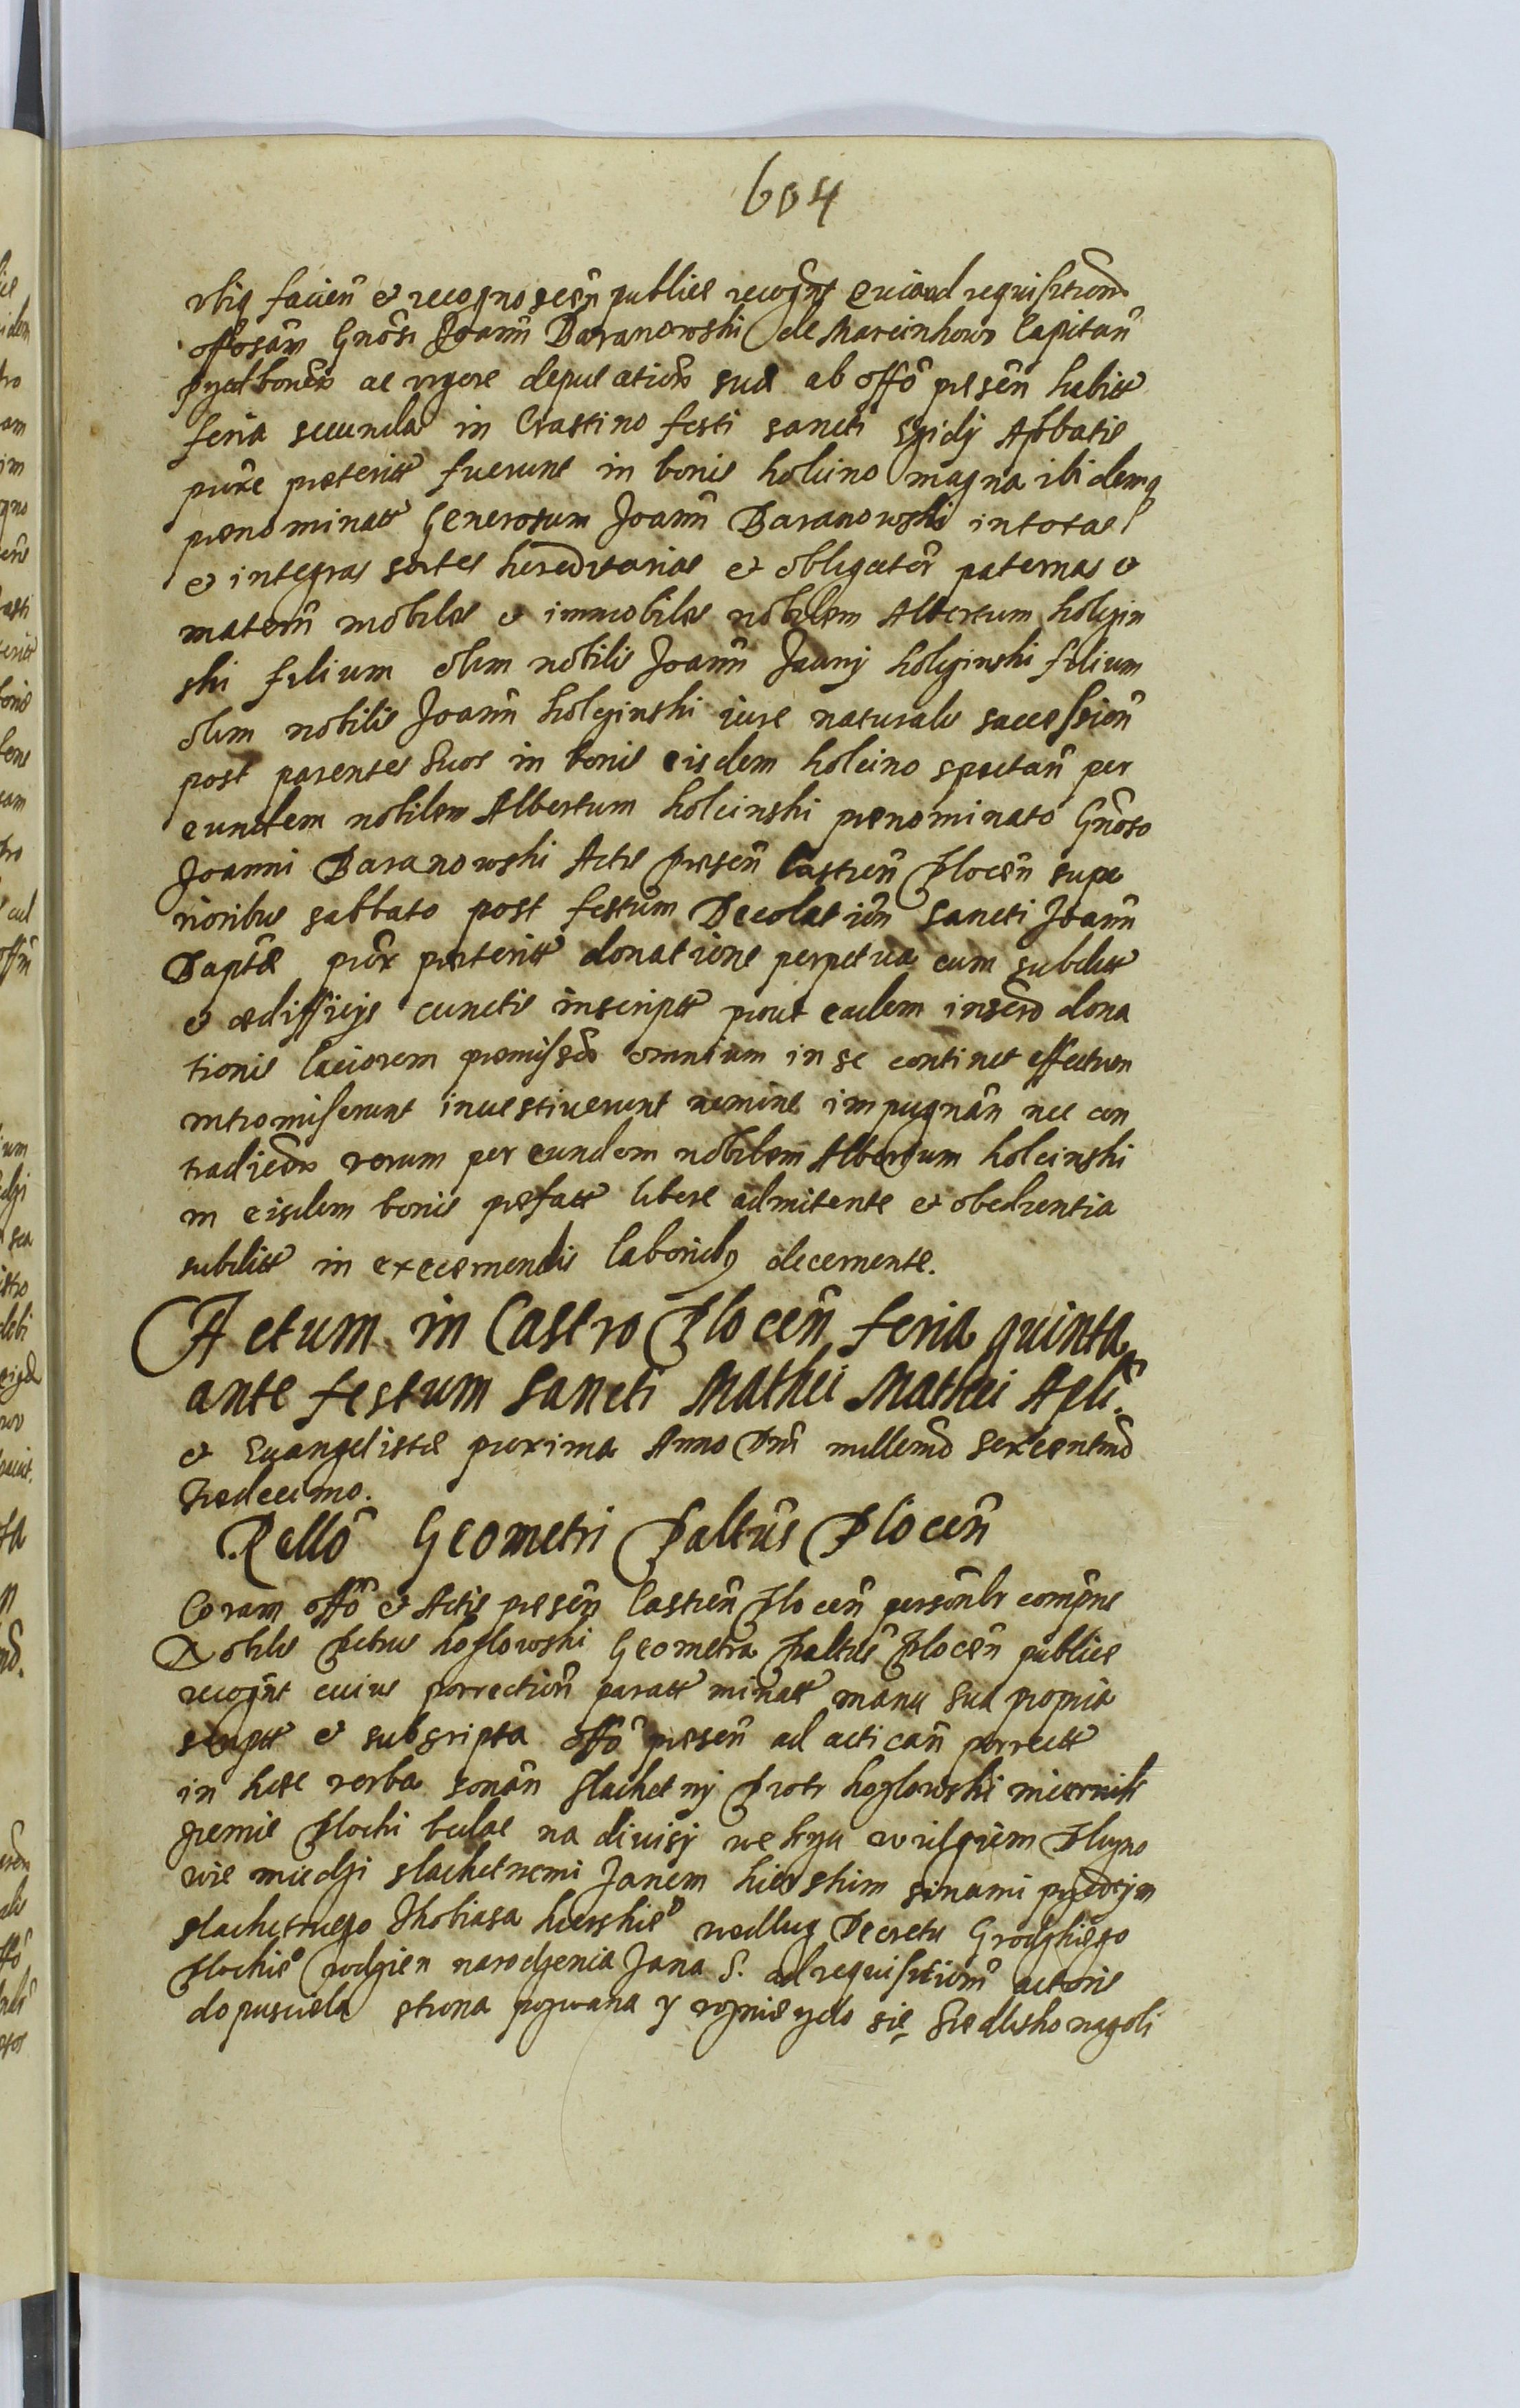 604
ibiq facien̄ et recognoscen̄ publice recognt̄ quia ad requisitionē
offosam Gnōsi Joann̄ Baranowski de Marcinkowo Capitan̄
ac vigore deputationē sua ab offō presēn habitt
feria secunda in Crastino festi sancti Egidij Abbatis
prōxe preteritt fuerunt in bonis kolcino magna ibidemq
prenominatt Generosum Joann̄ Baranowski in totas
et integras sortes hereditarias et obligator̄ paternas et
matern̄ mobiles et immobiles nobilem Albertum kolczin
ski filium olim nobilis Joann̄ kolczinski filium
olim nobilis Joann̄ kolczinski iure naturalis succession̄
post parentes suos in bonis eisdem kolcino spectan̄ per
eundem nobilem Albertum kolcinski prenominato Gnōso
Joanni Baranowski Actis presen̄ Castren̄ Plocen̄ supe
rioribus sabbato post festum Decolation̄ Sancti Joann̄
Baptē prōx preteritt donatione perpetua cum subditt
et ædifficijs cunctis inscriptt prout eadem inscrō dona
tionis laciorem premissōr omnium in se continet effectum
intromiserunt inuestiuerunt nemine impugnan̄ nec con
tradicen̄ verum per eundem nobilem Albertum kolcinski
in eisdem bonis prefatt libere admitente et obedientia
subditt in exercemendis laboribq decernente.
Actum in Castro Plocen̄ feria quinta
ante festum Sancti Mathei Mathei Apli.
et Euangelistæ proxima Anno Dnī millemō sexcentmō
tredecimo.
Rellō Geometri Paltūs Plocen̄
Coram offō et Actis presen̄ Castren̄ Plocen̄ persōnlr compns
Nobilis Petrus kozlowski Geometra Paltūs Plocen̄ publice
recognt̄ cuius porrection̄ paratt minatt manu sua propria
scriptt et subscripta offō presen̄ ad actican̄ porrectt
in hæc verba sonan̄ Slachetnj Piotr kozlowski miernik
zemie Plocki bedac na diuisij wilgiem Sluzno
wie miedzi slachetnemi Janem sinami
slachetnego Thobiasa wedlug Decretu Grodzkiego
Plockie͛ wdzien narodzenia Jana S. ad requisition̄ actoris
dopusciela strona pozwana y się Siedlisko nagoli